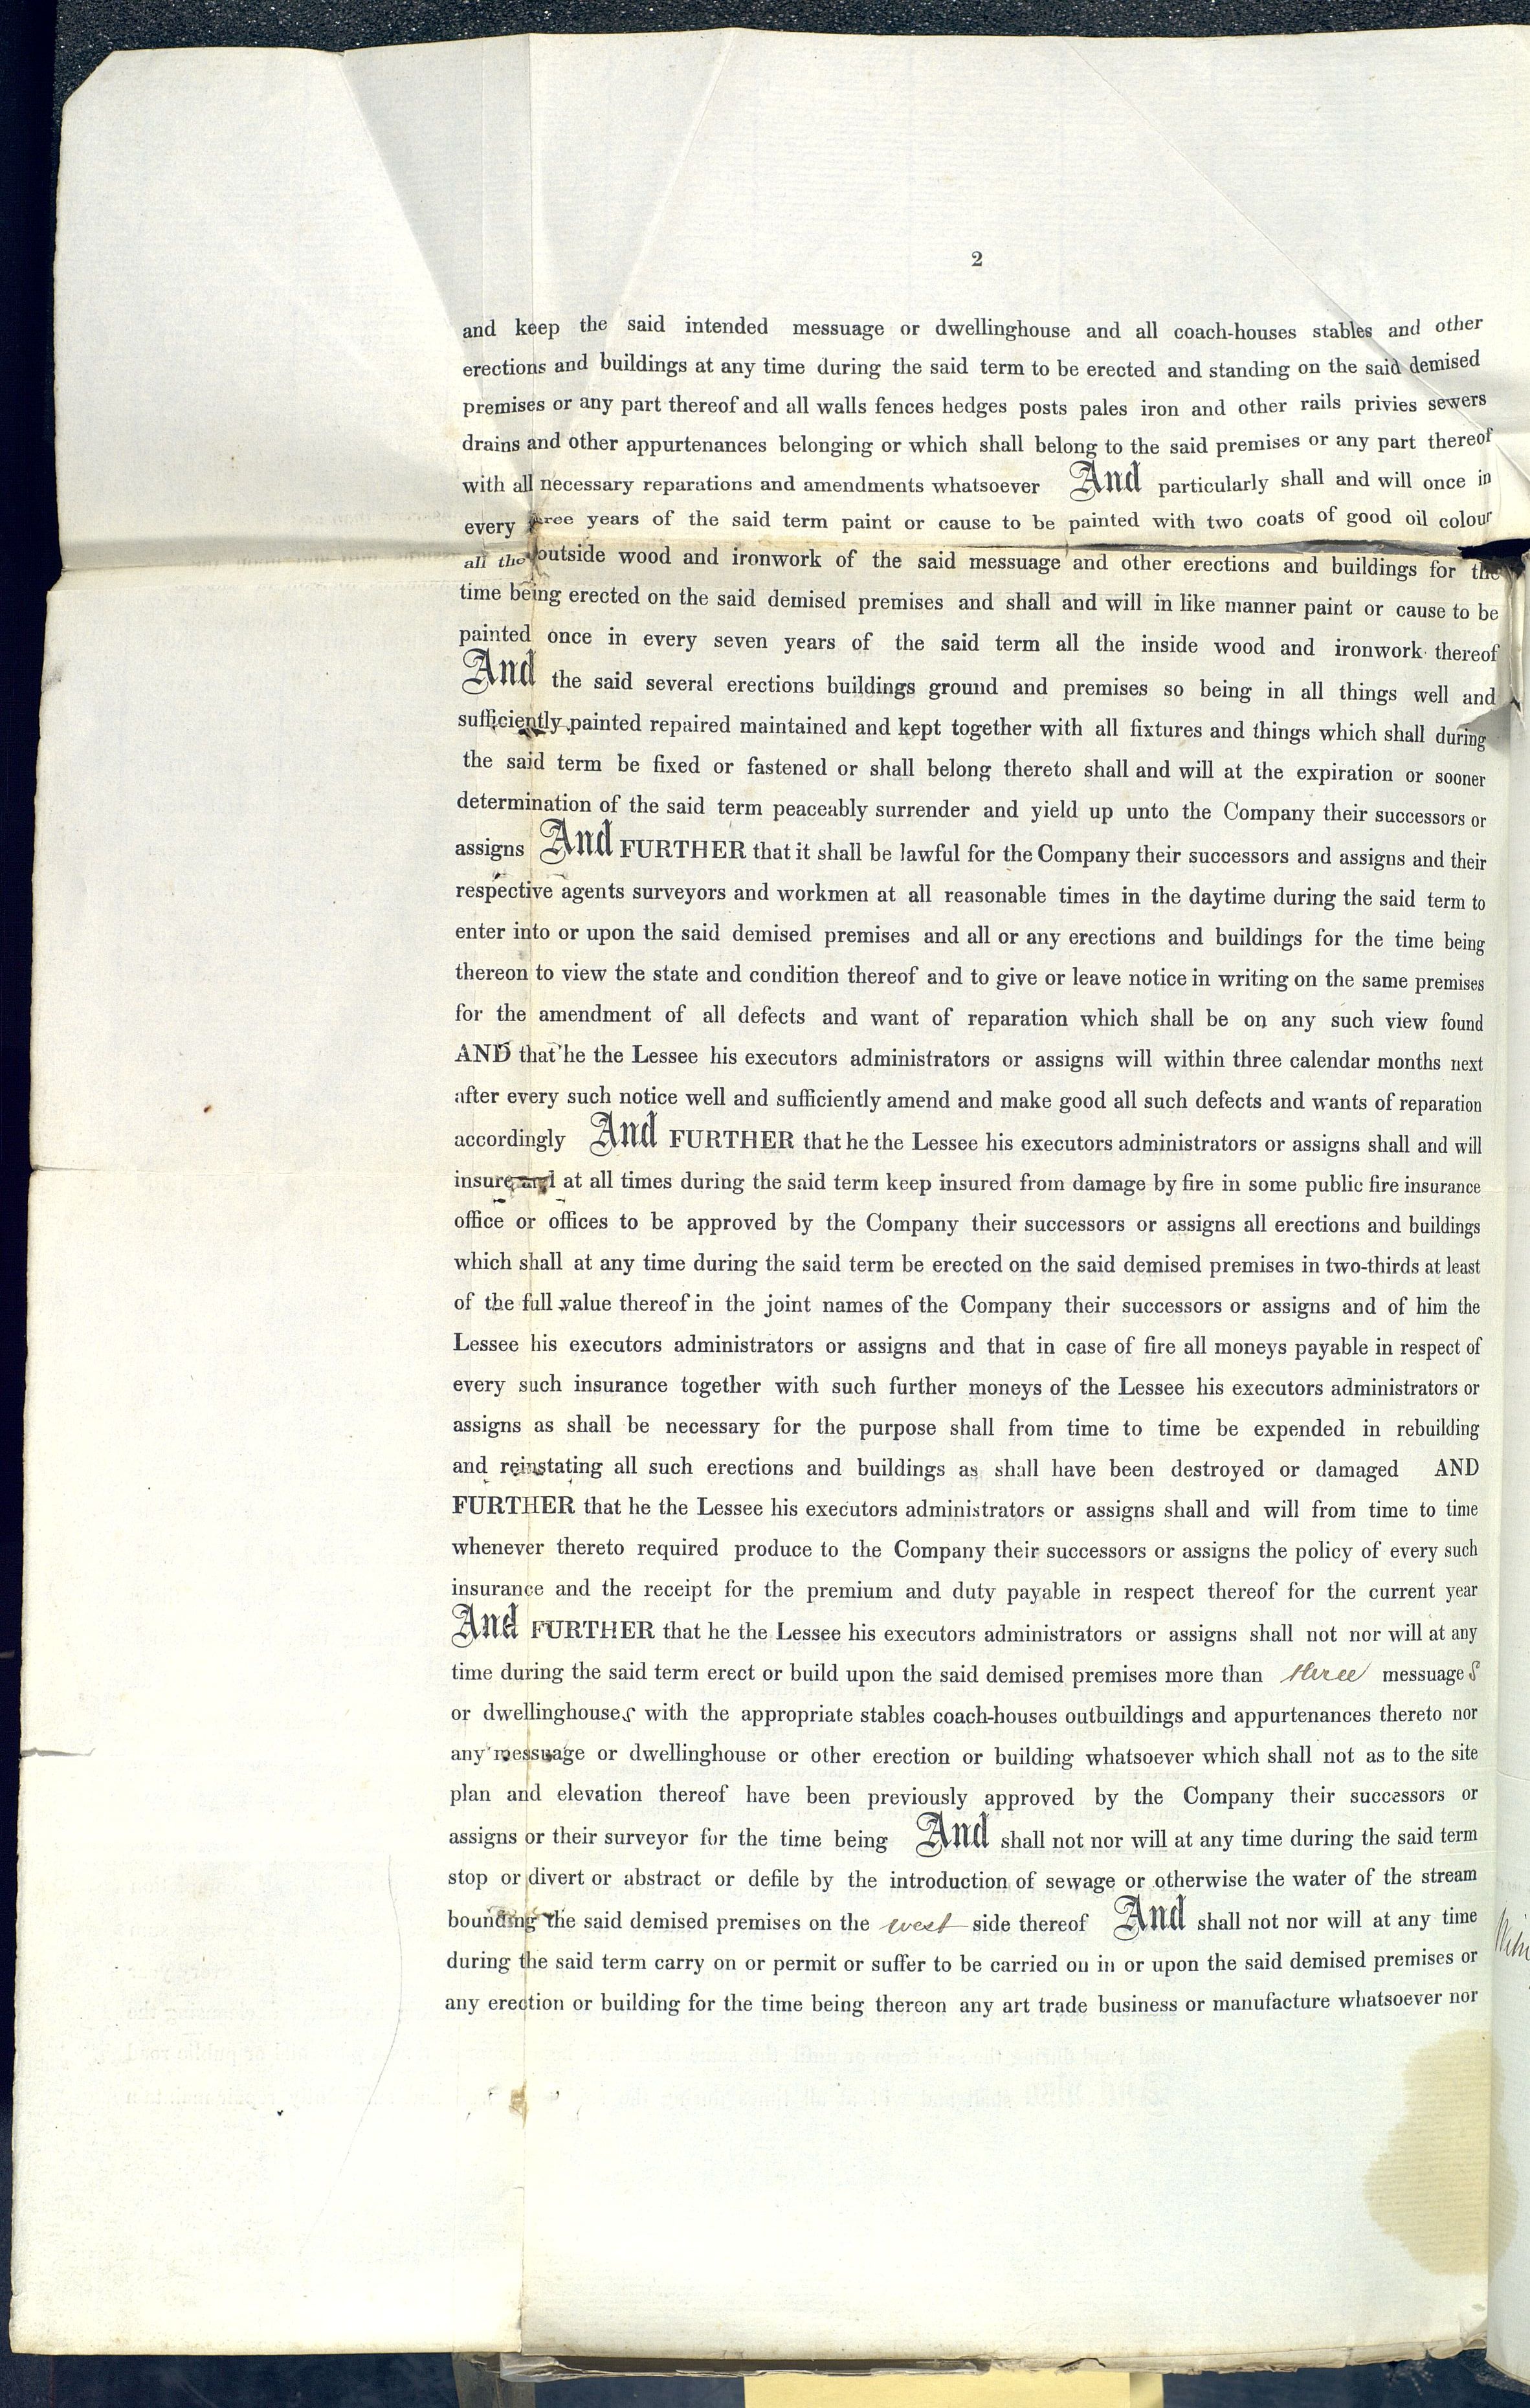 2
and keep the said intended messuage or dwellinghouse and all coach-houses stables and other
erections and buildings at any time during the said term to be erected and standing on the said demised
premises or any part thereof and all walls fences hedges posts pales iron and other rails privies sewers
drains and other appurtenances belonging or which shall belong to the said premises or any part thereof
with all necessary reparations and amendments whatsoever And particularly shall and will once in
every three years of the said term paint or cause to be painted with two coats of good oil colour
all the outside wood and ironwork of the said messuage and other erections and buildings for the
time being erected on the said demised premises and shall and will in like manner paint or cause to be
painted once in every seven years of the said term all the inside wood and ironwork thereof
And the said several erections buildings ground and premises so being in all things well and
sufficiently painted repaired maintained and kept together with all fixtures and things which shall during
the said term be fixed or fastened or shall belong thereto shall and will at the expiration or sooner
determination of the said term peaceably surrender and yield up unto the Company their successors or
assigns And FURTHER that it shall be lawful for the Company their successors and assigns and their
respective agents surveyors and workmen at all reasonable times in the daytime during the said term to
enter into or upon the said demised premises and all or any erections and buildings for the time being
thereon to view the state and condition thereof and to give or leave notice in writing on the same premises
for the amendment of all defects and want of reparation which shall be on any such view found
AND that he the Lessee his executors administrators or assigns will within three calendar months next
after every such notice well and sufficiently amend and make good all such defects and wants of reparation
accordingly And FURTHER that he the Lessee his executors administrators or assigns shall and will
insure and at all times during the said term keep insured from damage by fire in some public fire insurance
office or offices to be approved by the Company their successors or assigns all erections and buildings
which shall at any time during the said term be erected on the said demised premises in two-thirds at least
of the full value thereof in the joint names of the Company their successors or assigns and of him the
Lessee his executors administrators or assigns and that in case of fire all moneys payable in respect of
every such insurance together with such further moneys of the Lessee his executors administrators or
assigns as shall be necessary for the purpose shall from time to time be expended in rebuilding
and reinstating all such erections and buildings as shall have been destroyed or damaged AND
FURTHER that he the Lessee his executors administrators or assigns shall and will from time to time
whenever thereto required produce to the Company their successors or assigns the policy of every such
insurance and the receipt for the premium and duty payable in respect thereof for the current year
And FURTHER that he the Lessee his executors administrators or assigns shall not nor will at any
time during the said term erect or build upon the said demised premises more than three messuages
or dwellinghouses with the appropriate stables coach-houses outbuildings and appurtenances thereto nor
any messuage or dwellinghouse or other erection or building whatsoever which shall not as to the site
plan and elevation thereof have been previously approved by the Company their successors or
assigns or their surveyor for the time being And shall not nor will at any time during the said term
stop or divert or abstract or defile by the introduction of sewage or otherwise the water of the stream
bounding the said demised premises on the west side thereof And shall not nor will at any time
during the said term carry on or permit or suffer to be carried on in or upon the said demised premises or
any erection or building for the time being thereon any art trade business or manufacture whatsoever nor